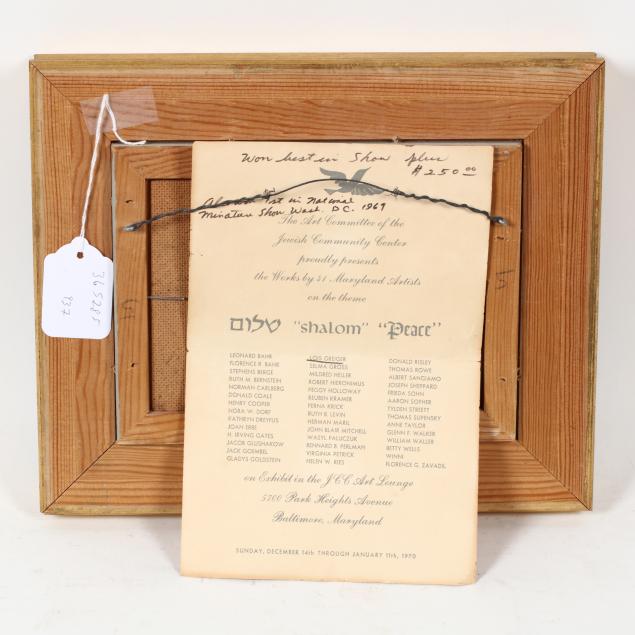 Won best in Show plus
$250.00
Also won 1st in National
Minature Show Wash. D.C. 1969
The Art Committee of the
Jewish Community Center
proudly presents
the Works by 41 Maryland Artists
on the theme
שלום "shalom" "Peace"
LEONARD BAHR
FLORENCE R. BAHR
STEPHENS BERGE
RUTH M. BERNSTEIN
NORMAN CARLBERG
DONALD COALE
HENRY COOPER
NORA W. DORF
KATHRYN DREYFUS
JOAN ERBE
H. IRVING GATES
JACOB GLUSHAKOW
JACK GOEMBEL
GLADYS GOLDSTEIN
LOIS GREIGER
SELMA GROSS
MILDRED HEILER
ROBERT HIERONIMUS
PEGGY HOLLOWAY
REUBEN KRAMER
PERNA KRICK
RUTH B. LEVIN
HERMAN MARIL
JOHN BLAIR MITCHELL
WASYL PALIJCZUK
BENNARD B. PERLMAN
VIRGINIA PETRICK
HELEN W. RIES
DONALD RISLEY
THOMAS ROWE
ALBERT SANGIAMO
JOSEPH SHEPPARD
FRIEDA SOHN
AARON SOPHER
TYLDEN STREETT
THOMAS SUPENSKY
ANNE TAYLOR
GLENN F. WALKER
WILLIAM WALLER
BETTY WELLS
WINNI
FLORENCE G. ZAVADIL
on Exhibit in the JCC Art Lounge
5700 Park Heights Avenue
Baltimore, Maryland
SUNDAY, DECEMBER 14th THROUGH JANUARY 11th, 1970
365285
837